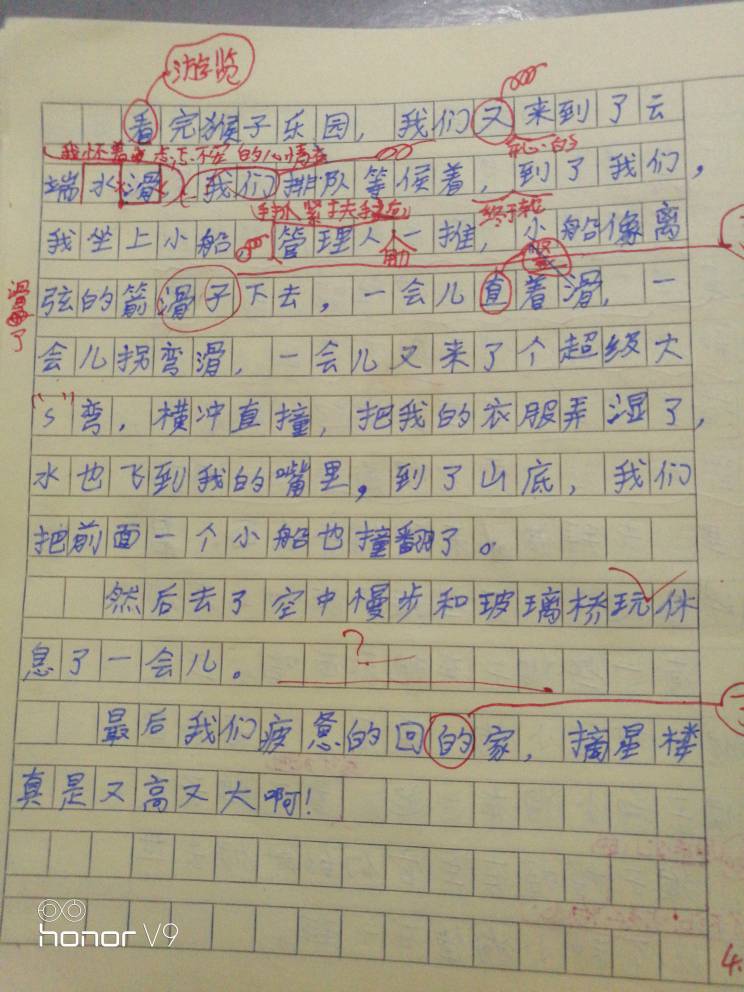 游览
看完猴子乐园，我们又来到了云
我怀着忐忑不安的心情在
端水滑，我们排队等候着，到了我们，
抓紧扶手后
终于轮
我坐上小船。管理人一推，小船像离
弦的箭滑子下去，一会儿直着滑，一
滑了
会儿拐弯滑，一会儿又来了个超级大
"s"弯，横冲直撞，把我的衣服弄湿了，
水也飞到我的嘴里，到了山底，我们
把前面一个小船也撞翻了。
然后去了空中慢步和玻璃桥玩休
息了一会儿。
?
最后我们疲惫的回的家，摘星楼
真是又高又大啊！
4.
honor V9